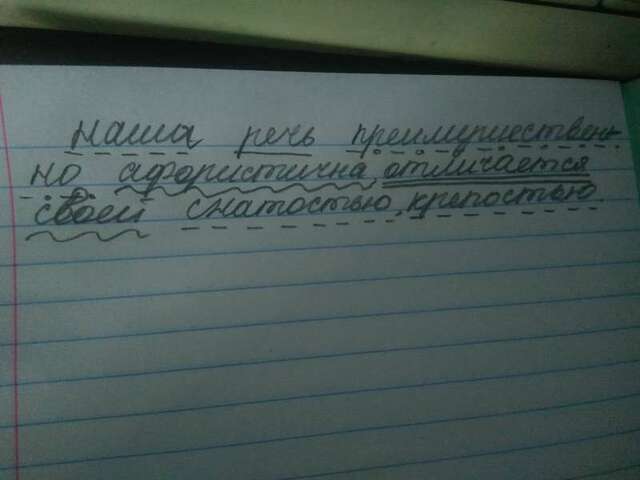 Наша речь преимуществен-
но афористична, отличается
своей сжатостью, крепостью.